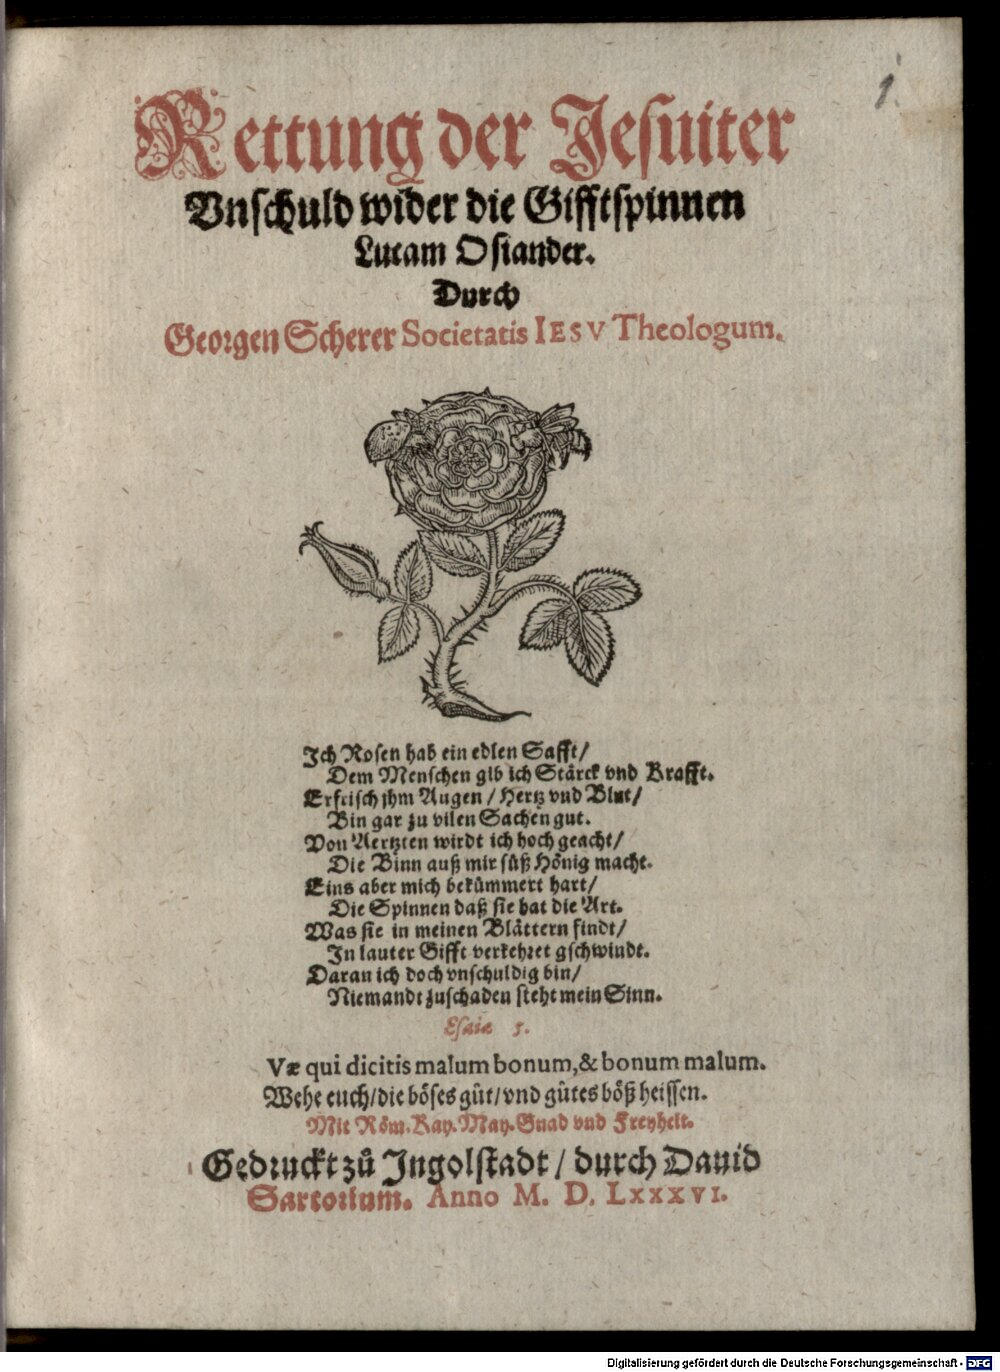 1.
Rettung der Jesuiter
Vnschuld wider die Gifftspinnen
Lucam Osiander.
Durch
Georgen Scherer Societatis IESV Theologum.
Ich Rosen hab ein edlen Safft/
Dem Menschen gib ich Stärck vnd Krafft.
Erfrisch jhm Augen / Hertz vnd Blut/
Bin gar zu vilen Sachen gut.
Von Aertzten wirdt ich hoch geacht/
Die Binn auß mir süß Hönig macht.
Eins aber mich bekümmert hart/
Die Spinnen daß sie hat die Art.
Was sie in meinen Blättern findt/
In lauter Gifft verkehret gschwindt.
Daran ich doch vnschuldig bin/
Niemandt zuschaden steht mein Sinn.
Esaiæ 5.
Væ qui dicitis malum bonum, & bonum malum.
Wehe euch/die böses gůt/vnd gůtes böß heissen.
Mit Röm. Kay. May. Gnad vnd Freyheit.
Gedruckt zů Ingolstadt / durch Dauid
Sartorium. Anno M. D. LXXXVI.
Digitalisierung gefördert durch die Deutsche Forschungsgemeinschaft - DFG